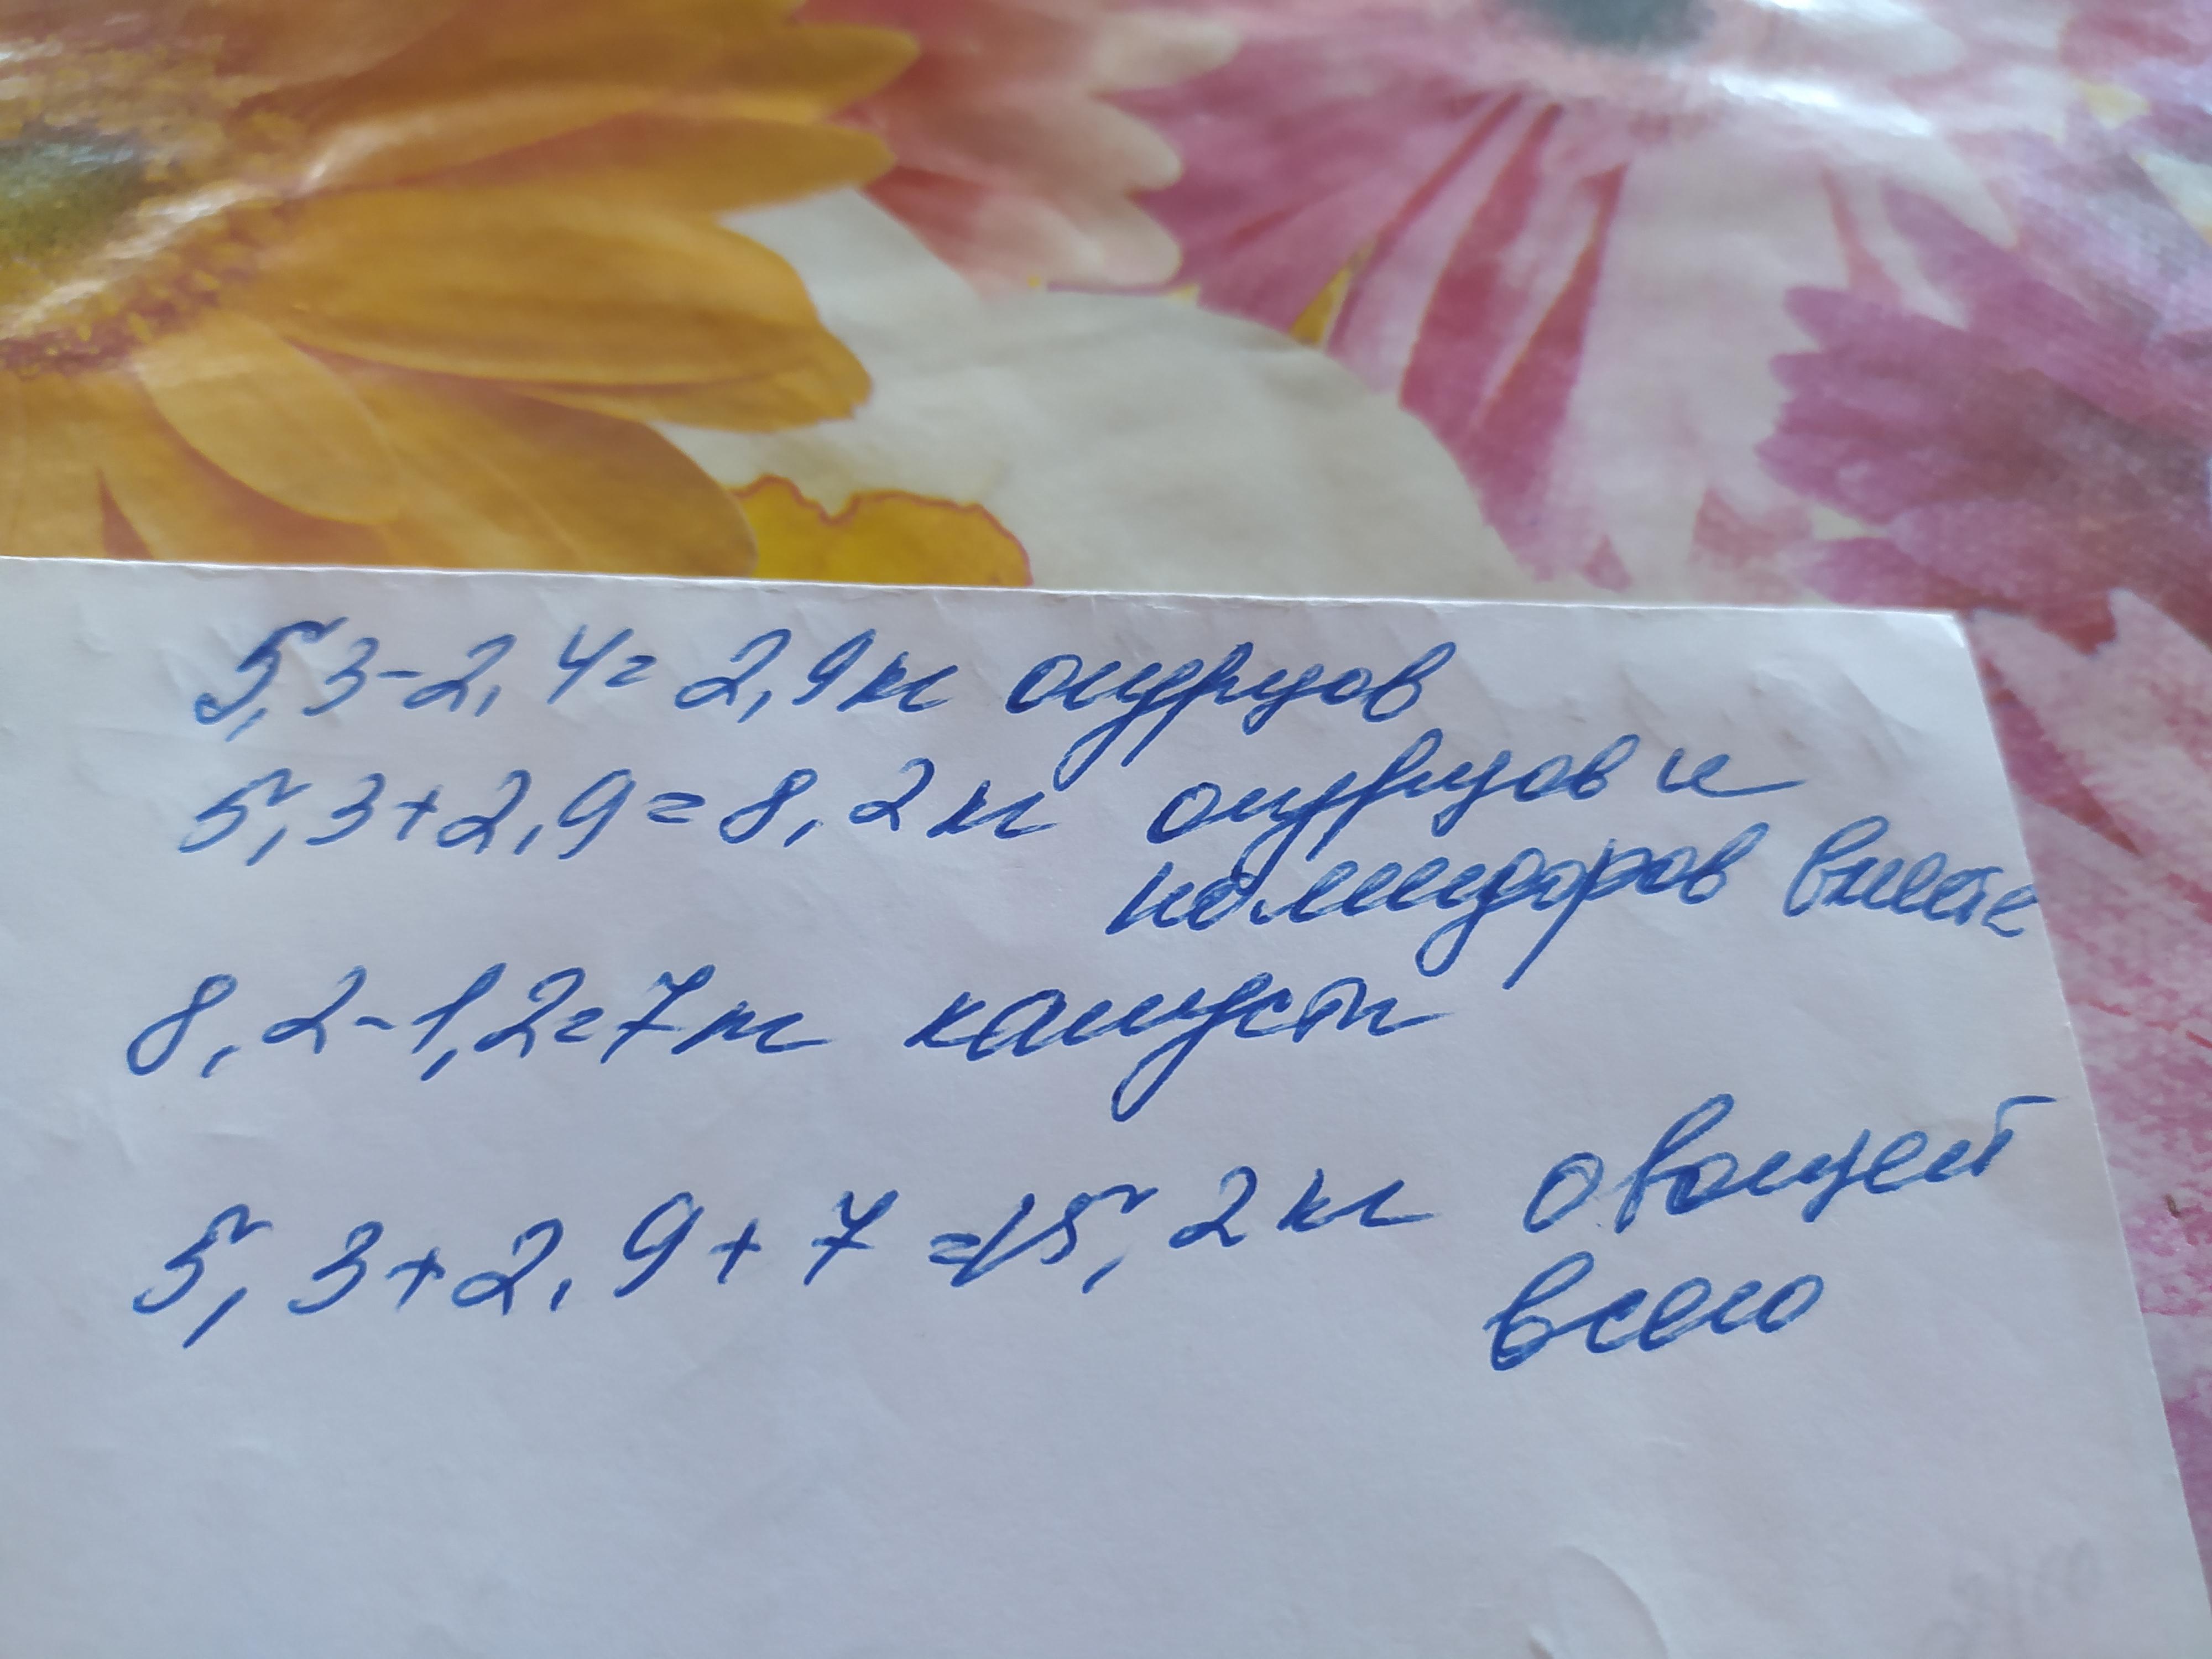 5,3-2,4=2,9кг огурцов
5,3+2,9=8,2кг огурцов и
помидоров вместе
8,2-1,2=7кг капусты
5,3+2,9+7=15,2кг овощей
всего